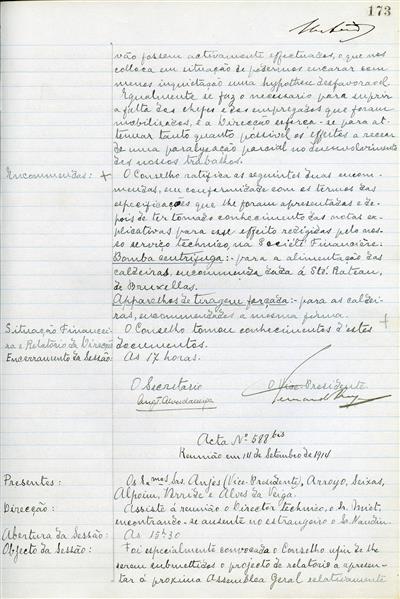 173
vão fossem activamente effectuados, o que nos
colloca em situação de podermos encarar com
menos inquietação uma hypothese desfavoravel.
Egualmente se faz o necessario para suprir
a falta dos chefes e dos empregados que foram
mobilizados, e a Direcção esforça-se para at-
tenuar tanto quanto possivel os effeitos a recear
de uma paralysação parcial no desenvolvimento
dos nossos trabalhos.
Encommendas: + O Conselho ratifica as seguintes duas encom-
mendas, em conformidade com os termos das
especificações que lhe foram apresentadas e de-
pois de ter tomado conhecimento das notas ex-
plicativas para esse effeito redigidas pelo nos-
so serviço technico, na Societé Financière:
Bomba centrifuga:- para a alimentação das
caldeiras, encommenda dada á Sté. Rateau,
de Bruxellas.
Apparelhos de tiragem forçada:- para as caldei-
ras, encommendados á mesma firma.
Situação Financei- O Conselho tomou conhecimento d'estes
ra e Relatorio da Direcção documentos.
Encerramento da Sessão: Ás 17 horas.
O Secretario O Vice-Presidente
Acta Nº 588 bis
Reunião em 14 de Setembro de 1914
Presentes: Os Exmos Srs. Anjos (Vice-Presidente), Arroyo, Seixas,
Alpoim, Burride e Alves da Veiga.
Direcção: Assiste á reunião o Director Technico, o Sr. Miet,
encontrando-se ausente no estrangeiro o Sr. Naudin.
Abertura da Sessão: Ás 15h30
Objecto da Sessão: Foi especialmente convocado o Conselho afim de lhe
serem submettidos o projecto de relatorio a apresen-
tar á proxima Assemblea Geral relativamente